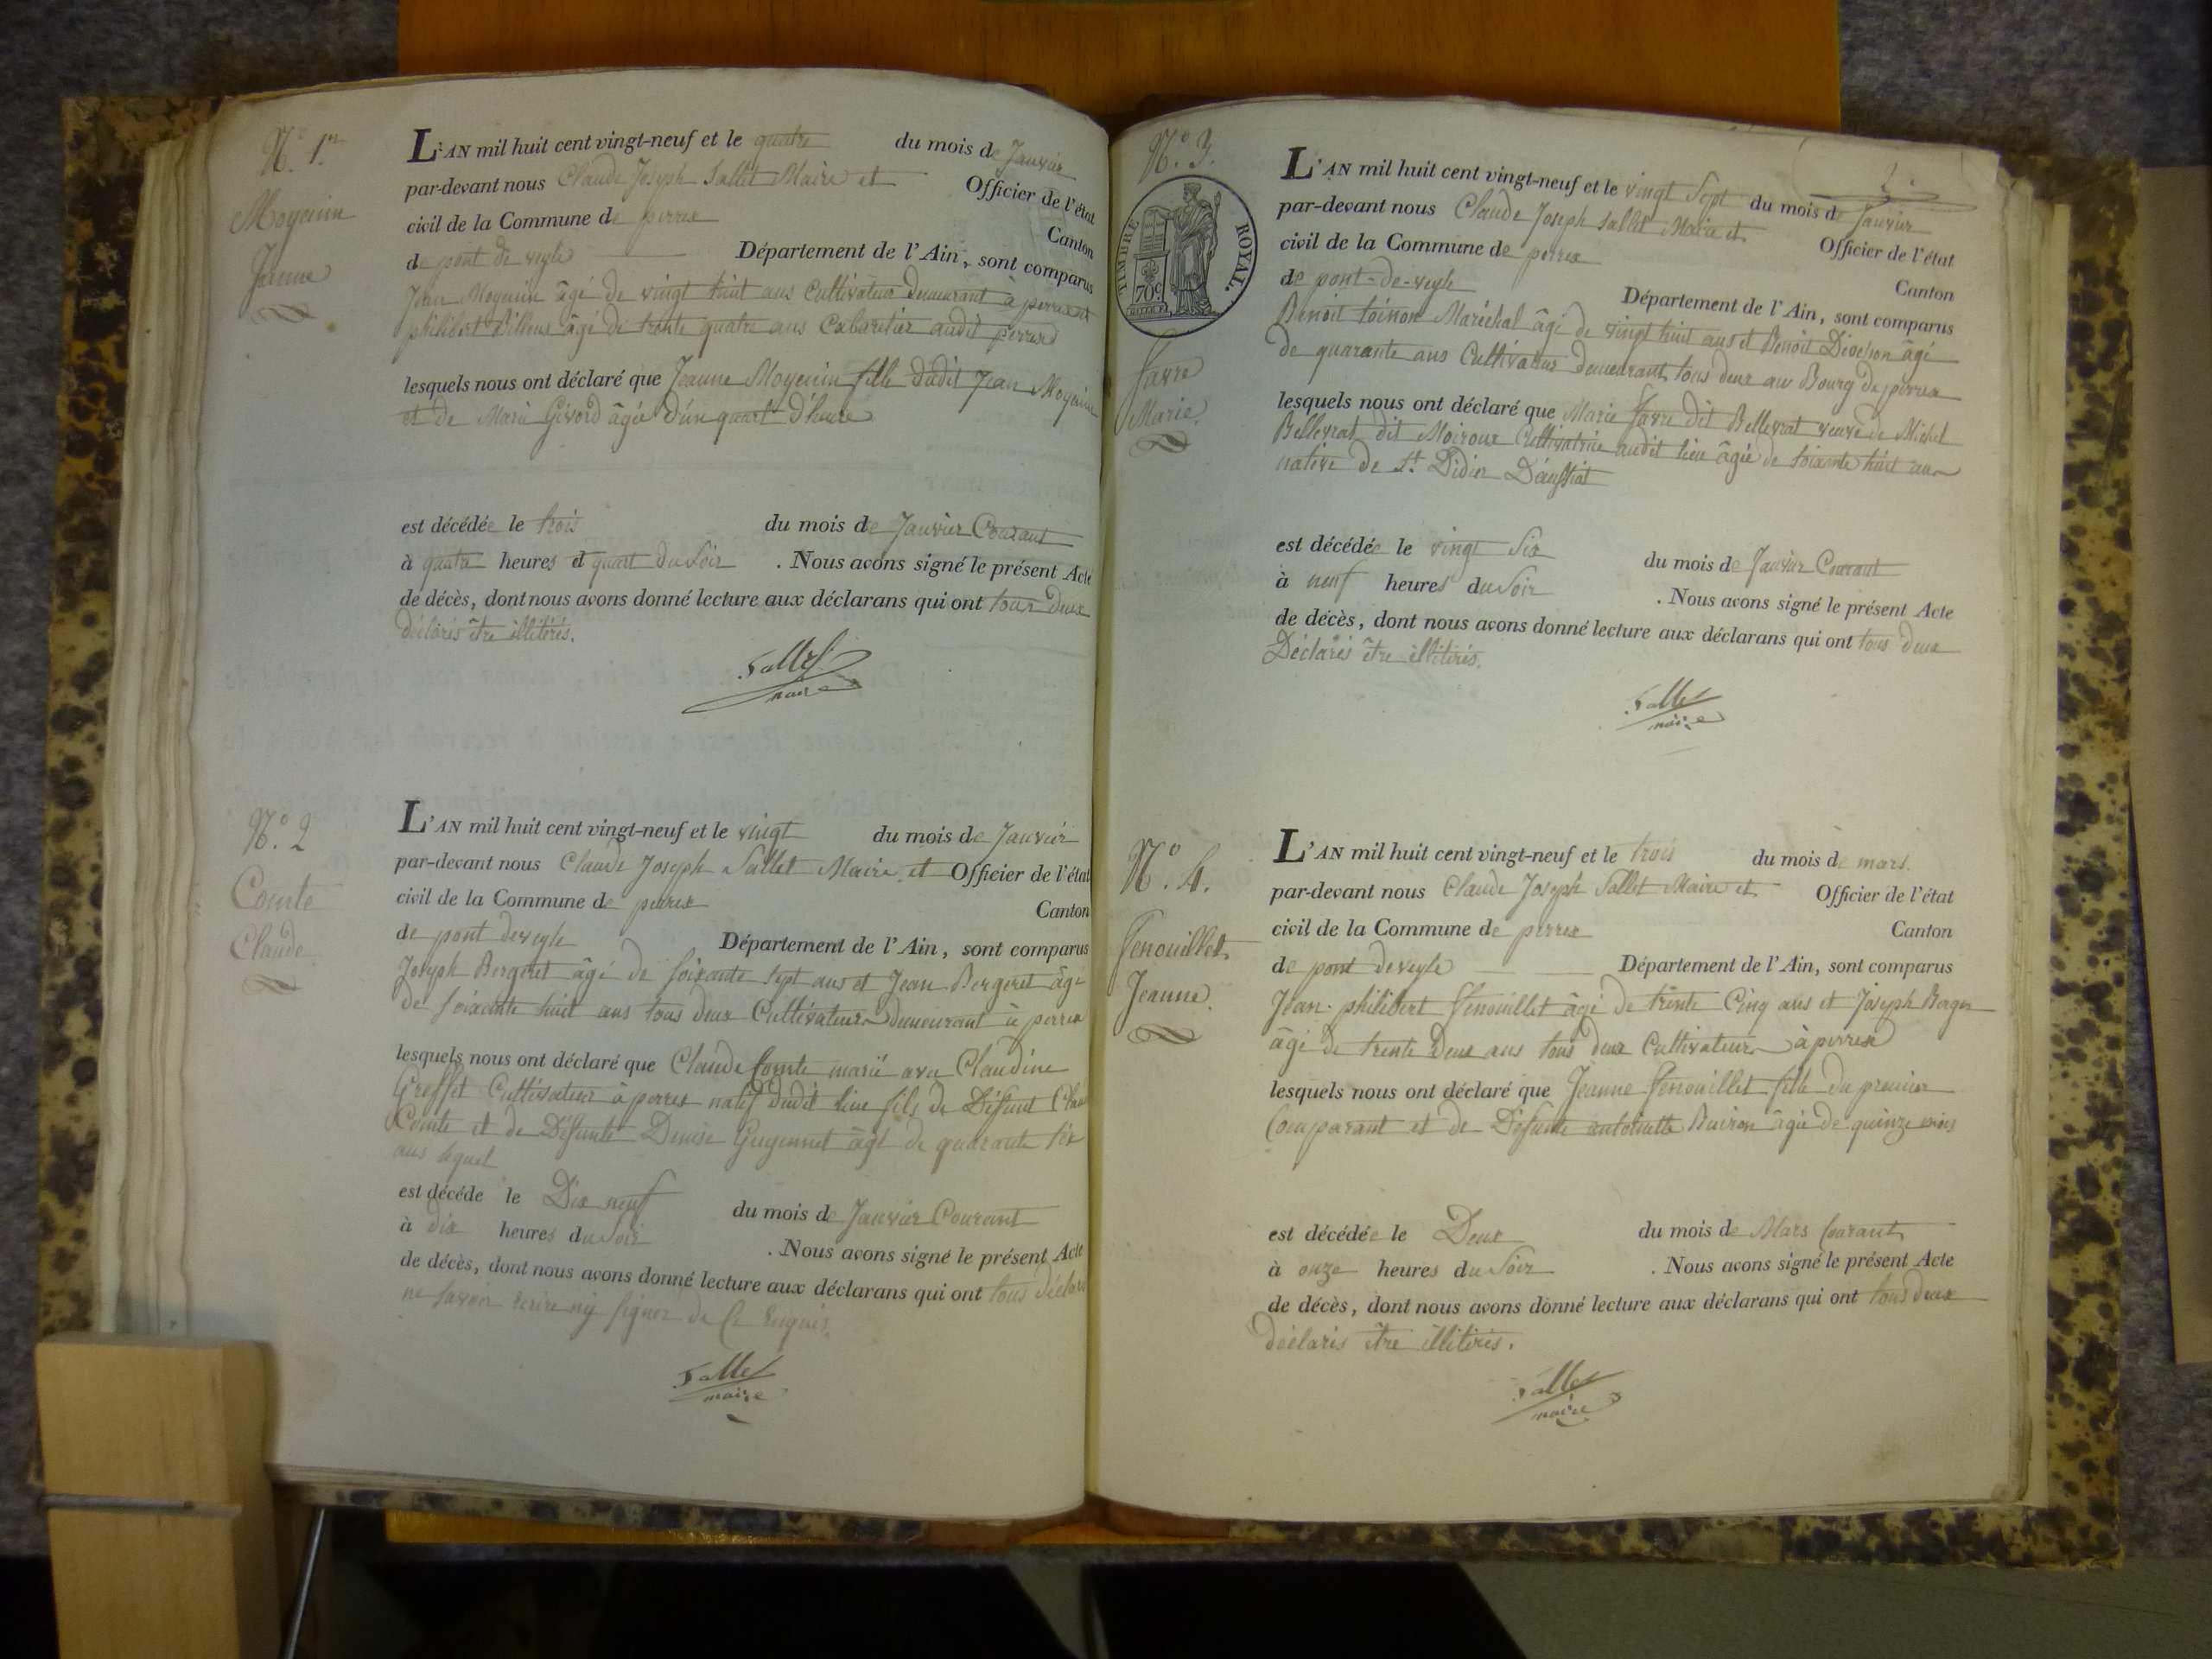 N.° 1.er
Moyenin
Jeanne
L'AN mil huit cent vingt-neuf et le quatre du mois de Janvier
par-devant nous Claude Joseph Sallet Maire et Officier de l'état
civil de la Commune de perrex Canton
de pont de veyle Département de l'Ain, sont comparus
Jean Moyenin âgé de vingt huit ans Cultivateur demeurant à perrex et
philibert âgé de trente quatre ans Cabaretier audit perrex
lesquels nous ont déclaré que Jeanne Moyenin fille dudit Jean Moyenin
et de Marie Givord âgée d'un quart d'heure
est décédée le trois du mois de Janvier Courant
à quatre heures et quart du Soir . Nous avons signé le présent Acte
de décès, dont nous avons donné lecture aux déclarans qui ont tous deux
déclarés être illitérés.
Sallet
maire
N.° 2
Comte
Claude
L'AN mil huit cent vingt-neuf et le vingt du mois de Janvier
par-devant nous Claude Joseph Sallet Maire et Officier de l'état
civil de la Commune de perrex Canton
de pont deveyle Département de l'Ain, sont comparus
Joseph Bergeret âgé de soixante sept ans et Jean Bergeret âgé
de soixante huit ans tous deux Cultivateurs demeurant à perrex
lesquels nous ont déclaré que Claude Comte marié avec Claudine
Greffet Cultivateur à perrex natif dudit lieu fils de Défunt Claude
Comte et de Défunte Denise Guyennet âgé de quarante six
ans lequel
est décéde le Dix neuf du mois de Janvier Courant
à dix heures du Soir . Nous avons signé le présent Acte
de décès, dont nous avons donné lecture aux déclarans qui ont tous déclaré
ne savoir écrire ny signer de Ce Enquis.
Sallet
maire
N.° 3.
TIMBRE ROYAL
70c
Favre
Marie
2.
L'AN mil huit cent vingt-neuf et le vingt Sept du mois de Janvier
par-devant nous Claude Joseph Sallet Maire et Officier de l'état
civil de la Commune de perrex Canton
de pont-de-veyle Département de l'Ain, sont comparus
Benoit Loinon Maréchal âgé de vingt huit ans et Benoit âgé
de quarante ans Cultivateur demeurant tous deux au Bourg de perrex
lesquels nous ont déclaré que Marie Favre dit Bellevrat veuve de Michel
Bellevrat dit Moiroux Cultivatrice audit lieu âgée de soixante huit ans
native de St. Didier D'aussiat
est décédée le vingt Six du mois de Janvier Courant
à neuf heures du Soir . Nous avons signé le présent Acte
de décès, dont nous avons donné lecture aux déclarans qui ont tous deux
Déclarés être illitérés.
Sallet
maire
N.° 4.
Fenouillet
Jeanne
L'AN mil huit cent vingt-neuf et le trois du mois de mars
par-devant nous Claude Joseph Sallet Maire et Officier de l'état
civil de la Commune de perrex Canton
de pont deveyle Département de l'Ain, sont comparus
Jean-philibert Fenouillet âgé de trente Cinq ans et Joseph Berger
âgé de trente Deux ans tous deux Cultivateurs à perrex
lesquels nous ont déclaré que Jeanne Fenouillet fille du premier
Comparant et de Défunte antoinette Buiron âgée de quinze mois
est décédée le Deux du mois de Mars Courant
à onze heures du Soir . Nous avons signé le présent Acte
de décès, dont nous avons donné lecture aux déclarans qui ont tous deux
déclarés être illitérés.
Sallet
maire